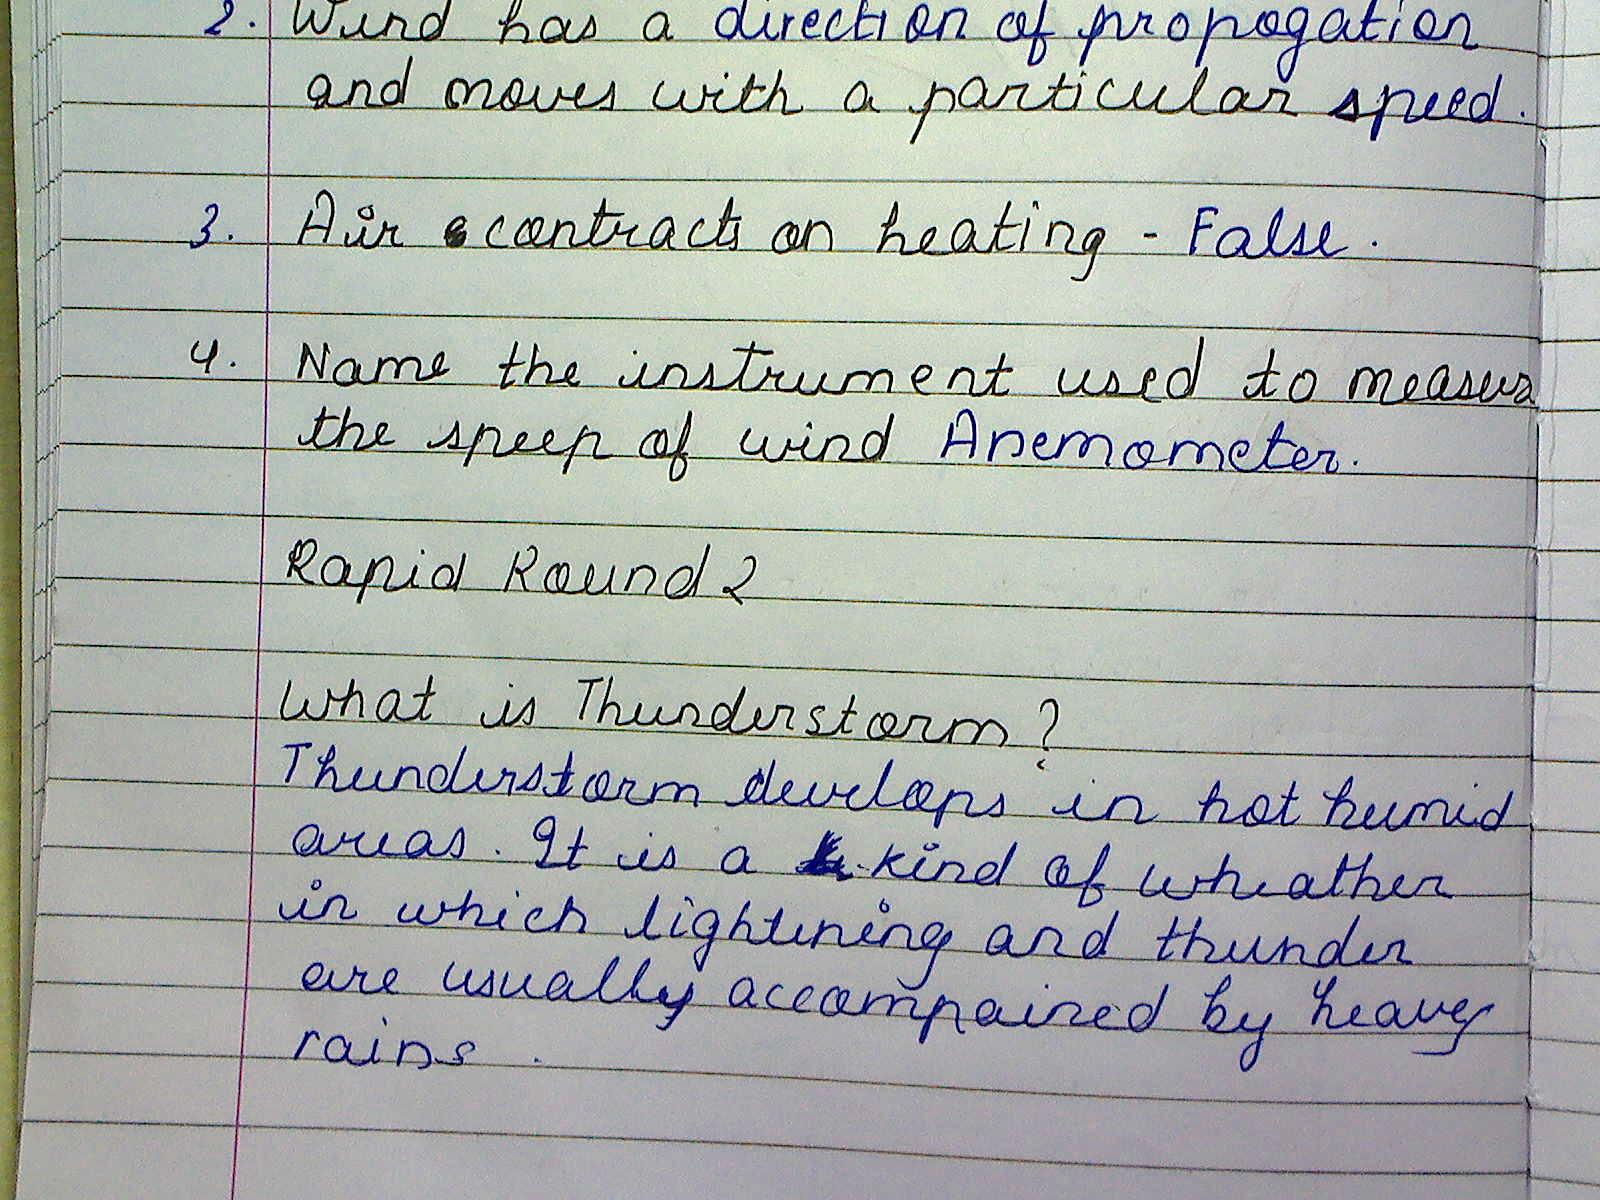 2. Wind has a direction of propogation
and moves with a particular speed.
3. Air contracts on heating - False.
4. Name the instrument used to measure
the speep of wind Anemometer.
Rapid Round 2
What is Thunderstorm?
Thunderstorm develops in hot humid
areas. It is a kind of wheather
in which lightening and thunder
are usually accompained by heavy
rains.